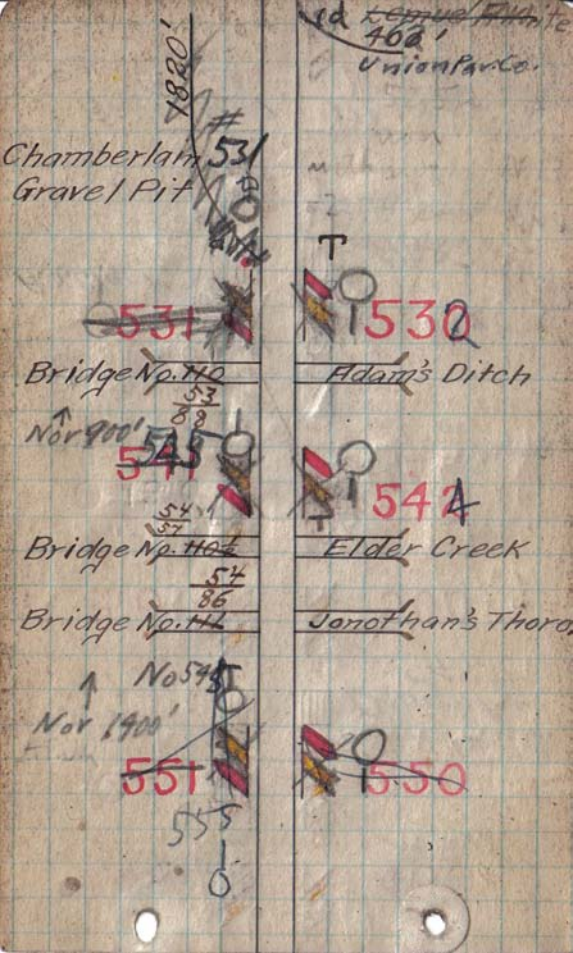 1820'
402'
Union Pav. Co.
# 531
Chamberlain
Gravel Pit
T
531
5302
Bridge No. 110
Adam's Ditch
53
88
Nor 900'
545
541
5424
54
57
Bridge No. 110½
Elder Creek
54
86
Bridge No. 111
Jonothan's Thoro.
No 545
Nor 1400'
551
550
555